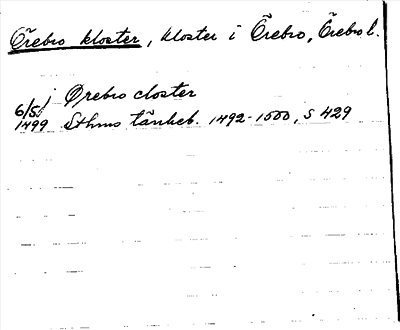 Örebro kloster, kloster i Örebro, Örebro l.
6/5 j Ørebro closter
1499 Sthms tänkeb. 1492-1500, s 429